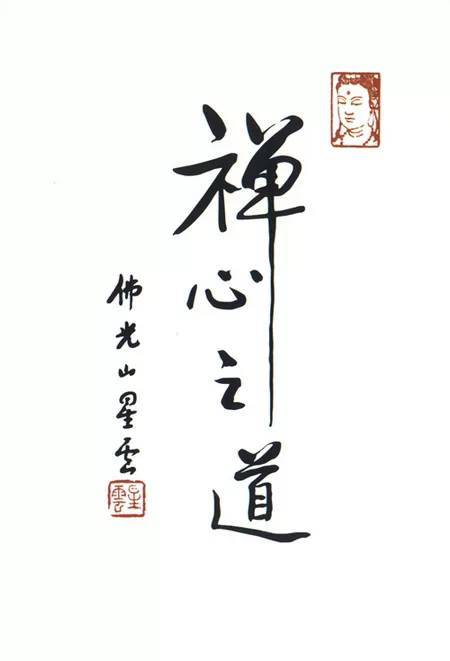 禅心之道
佛光山星雲
星雲